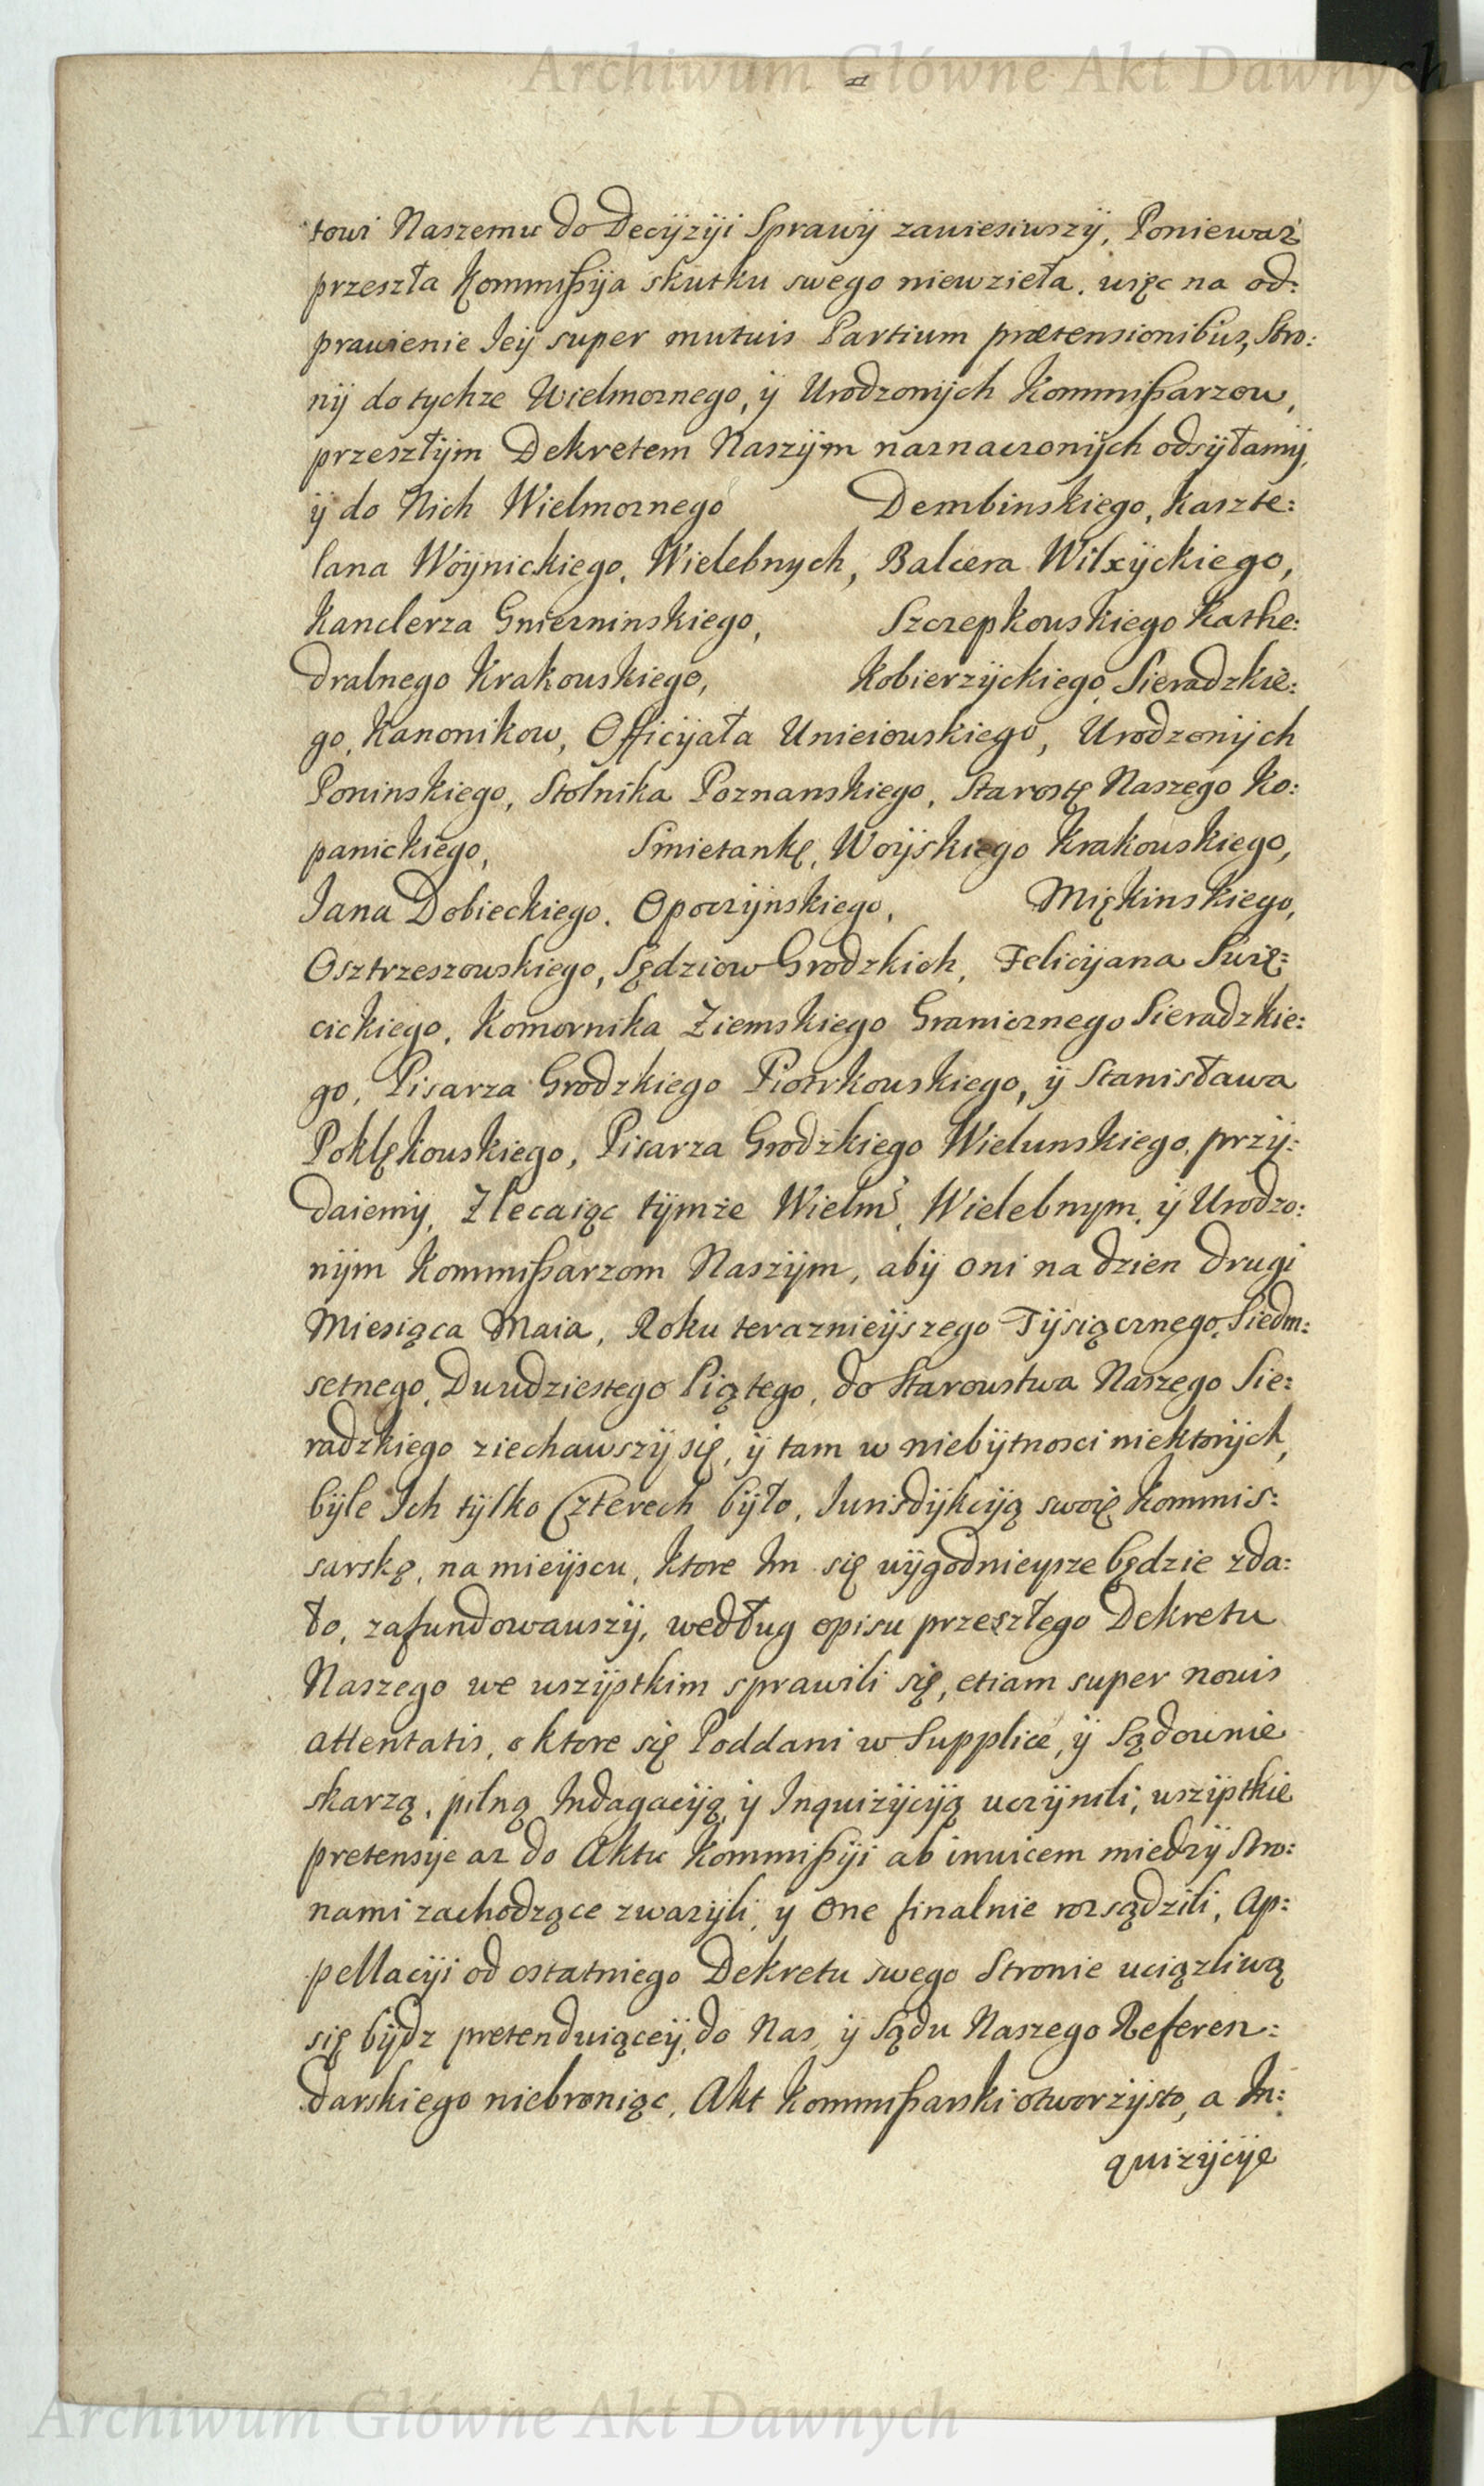 Archiwum Główne Akt Dawnych
towi Naszemu do Decÿzÿi Sprawÿ zawiesiwszÿ, Poniewaz
przeszła Kommißÿa skutku swego niewzieła, więc na od:
prawienie Ieÿ super mutuis Partium prætensionibus, Stro:
nÿ do tychze Wielmoznego, ÿ Urodzonÿch Kommißarzow,
przeszłÿm Dekretem Naszÿm naznaczonÿch odsÿłamÿ,
ÿ do Nich Wielmoznego Dembinskiego, Kaszte:
lana Woÿnickiego, Wielebnych, Balcera Wilxÿckiego,
Kanclerza Gniezninskiego, Szczepkowskiego Kathe:
dralnego Krakowskiego, Kobierzÿckiego Sieradzkie:
go, Kanonikow, Officÿała Unieiowskiego, Urodzonÿch
Poninskiego, Stolnika Poznanskiego, Starostę Naszego Ko:
panickiego, Smietankę, Woÿskiego Krakowskiego,
Iana Dobieckiego, Opoczÿnskiego, Miękinskiego,
Osztrzeszowskiego, Sędziow Grodzkich, Felicÿana Swię:
cickiego, Komornika Ziemskiego Granicznego Sieradzkie:
go, Pisarza Grodzkiego Piotrkowskiego, ÿ Stanisława
Poklękowskiego, Pisarza Grodzkiego Wielunskiego, przÿ:
daiemÿ, Zlecaiąc tÿmże Wielm, Wielebnym, ÿ Urodzo:
nÿm Kommißarzom Naszÿm, abÿ oni na dzien drugi
Miesiąca Maia, Roku teraznieÿszego Tÿsiącznego, Siedm:
setnego, Dwudziestego Piątego, do Starowstwa Naszego Sie:
radzkiego ziechawszÿ się, ÿ tam w niebÿtnosci niektorÿch,
bÿle Ich tÿlko Czterech bÿło, Iurisdÿkcÿą swoię Kommis:
sarską, na mieÿscu, ktore Im się wÿgodnieysze będzie zda:
ło, zafundowawszÿ, według opisu przeszłego Dekretu
Naszego we wszÿstkim sprawili się, etiam super novis
attentatis, o ktore się Poddani w Supplice, ÿ Sądownie
skarzą, pilną Indagacÿą, ÿ Inquizÿcÿą uczÿnili, wszÿstkie
pretensÿe az do Aktu Kommißÿi ab invicem miedzÿ Stro:
nami zachodzące zwazÿli, y one finalnie rozsądzili, Ap:
pellacÿi od ostatniego Dekretu swego Stronie uciązliwą
się bÿdz pretenduiąceÿ, do Nas, ÿ Sądu Naszego Referen:
darskiego niebroniąc, Akt Kommißarski otworzÿsto, a In:
quizÿcÿę
Archiwum Główne Akt Dawnych